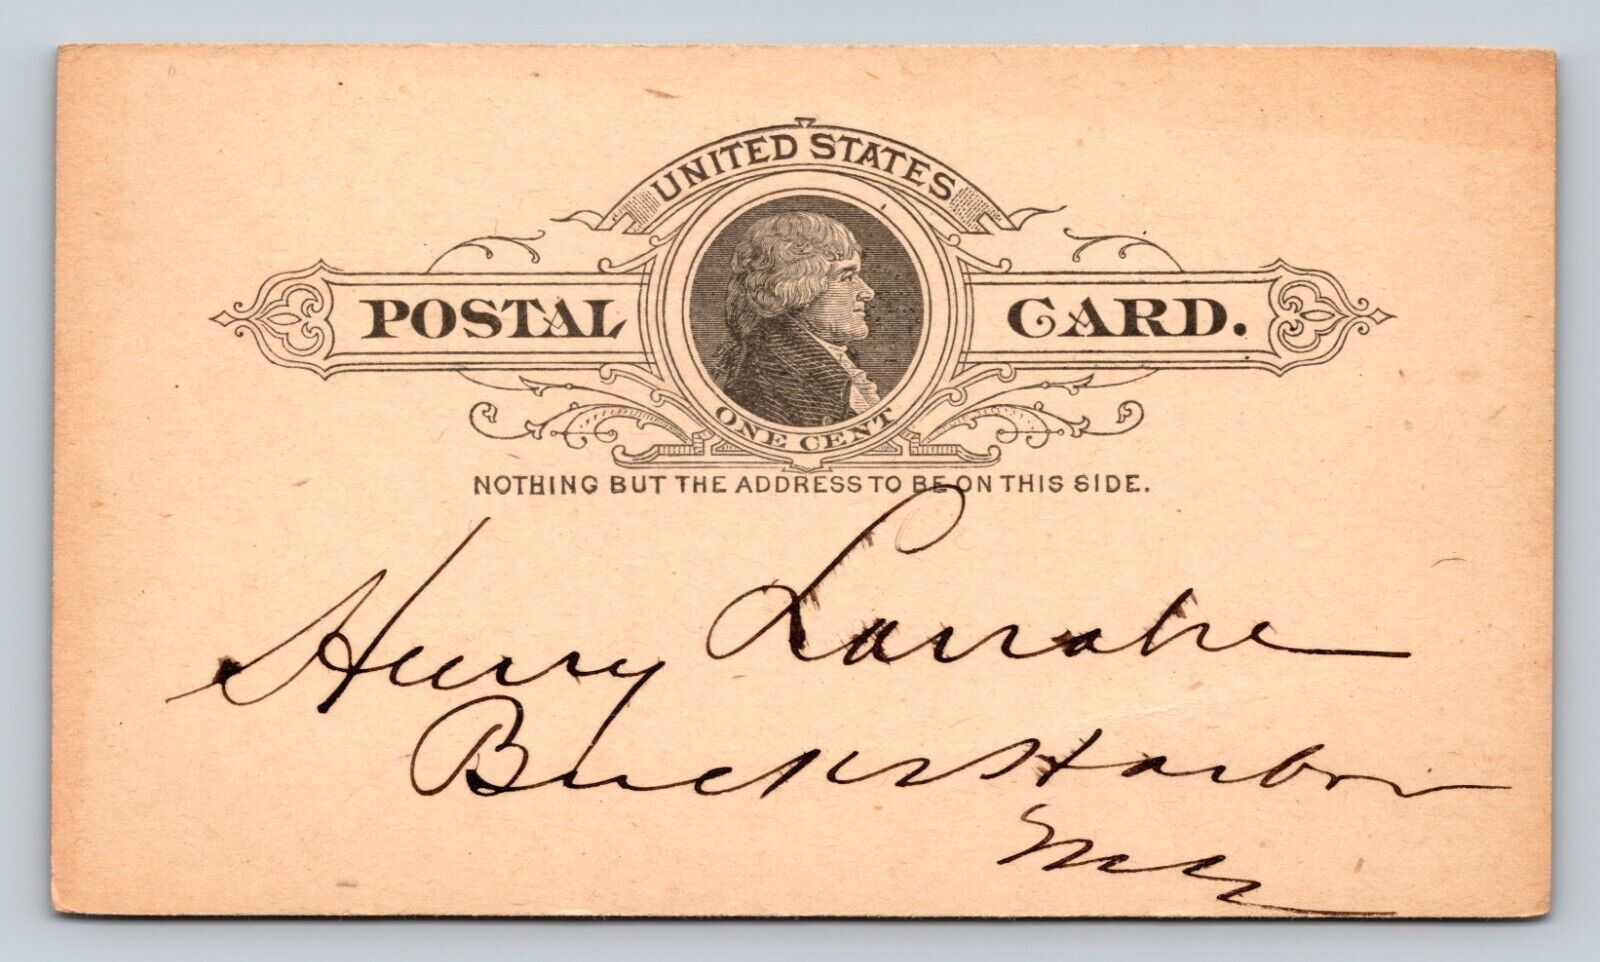 UNITED STATES
POSTAL CARD.
ONE CENT
NOTHING BUT THE ADDRESS TO BE ON THIS SIDE.
Henry Larrabe
Bucks Harbor
Me